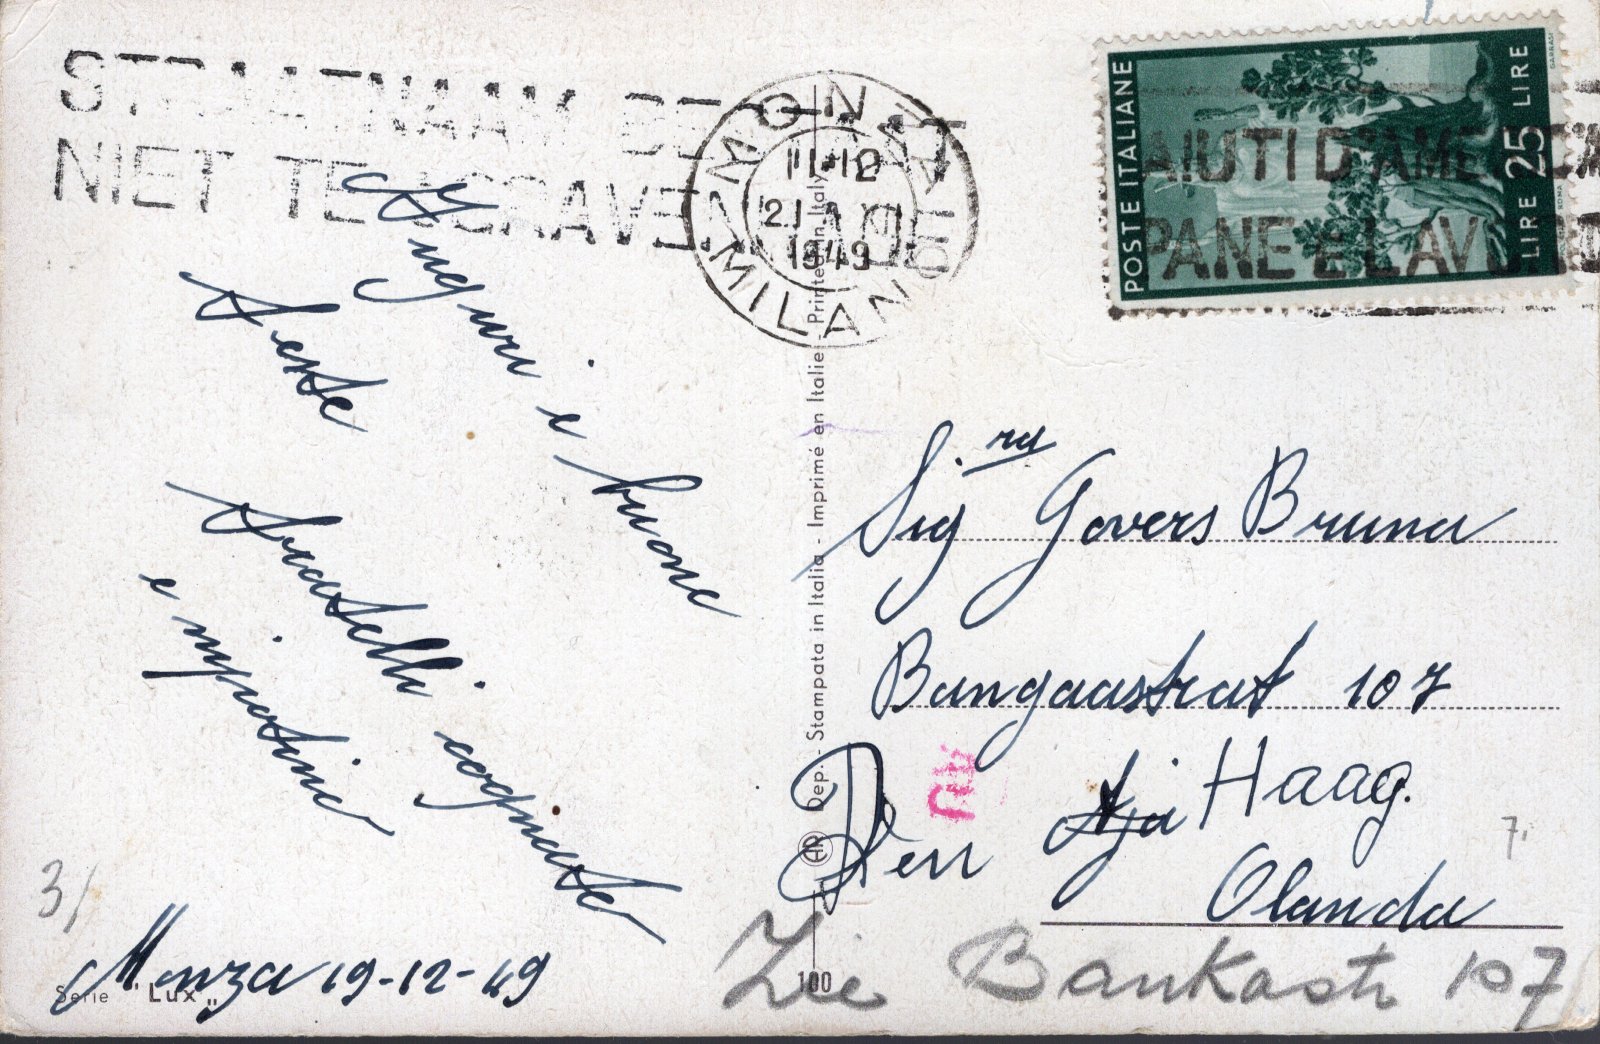 STRAATNAAM
NIET TE
MONZA
11-12
21 XII
1949
MILANO
POSTE ITALIANE
LIRE 25 LIRE
AIUTI D'AMERICA
PANE E LAVORO
Auguri e buone
feste
fratelli cognate
e nipotini
Monza 19-12-49
Serie "Lux"
3/
Dep. - Stampata in Italia - Imprimé en Italie - Printed in Italy
100
Sig.ra Govers Bruna
Bangaastrat 107
Den Aja Haag.
Olanda
7.
Zie Bankastr 107